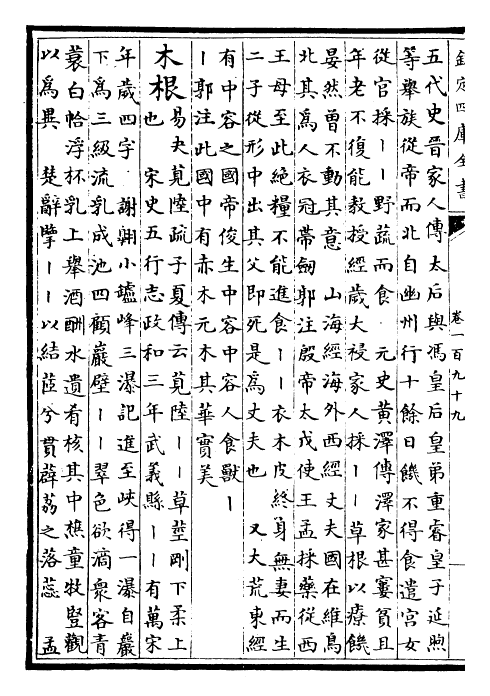 欽定四庫全書
卷一百九十九
五代史晉家人傳太后與馮皇后皇弟重睿皇子延煦
等舉族從帝而北自幽州行十餘日饑不得食遣宮女
從官採丨丨野蔬而食 元史黃澤傳澤家甚窶貧且
年老不復能教授經歲大祲家人採丨丨草根以療饑
晏然曽不動其意 山海經海外西經丈夫國在維鳥
北其為人衣冠帶劒郭注殷帝太戊使王孟採藥從西
王母至此絶糧不能進食丨丨衣木皮終身無妻而生
二子從形中出其父即死是為丈夫也 又大荒東經
有中容之國帝俊生中容中容人食獸丨
丨郭注此國中有赤木元木其華實美
木根 易夬莧陸疏子夏傳云莧陸丨丨草莖剛下柔上
也 宋史五行志政和三年武義縣丨丨有萬宋
年歲四字 謝翺小鑪峰三瀑記進至峽得一瀑自巖
下為三級流乳成池四顧巖壁丨丨翠色欲滴衆客青
蓑白帢浮杯乳上舉酒酬水遺肴核其中樵童牧豎觀
以為異 楚辭擥丨丨以結茝兮貫薜荔之落蕊 孟